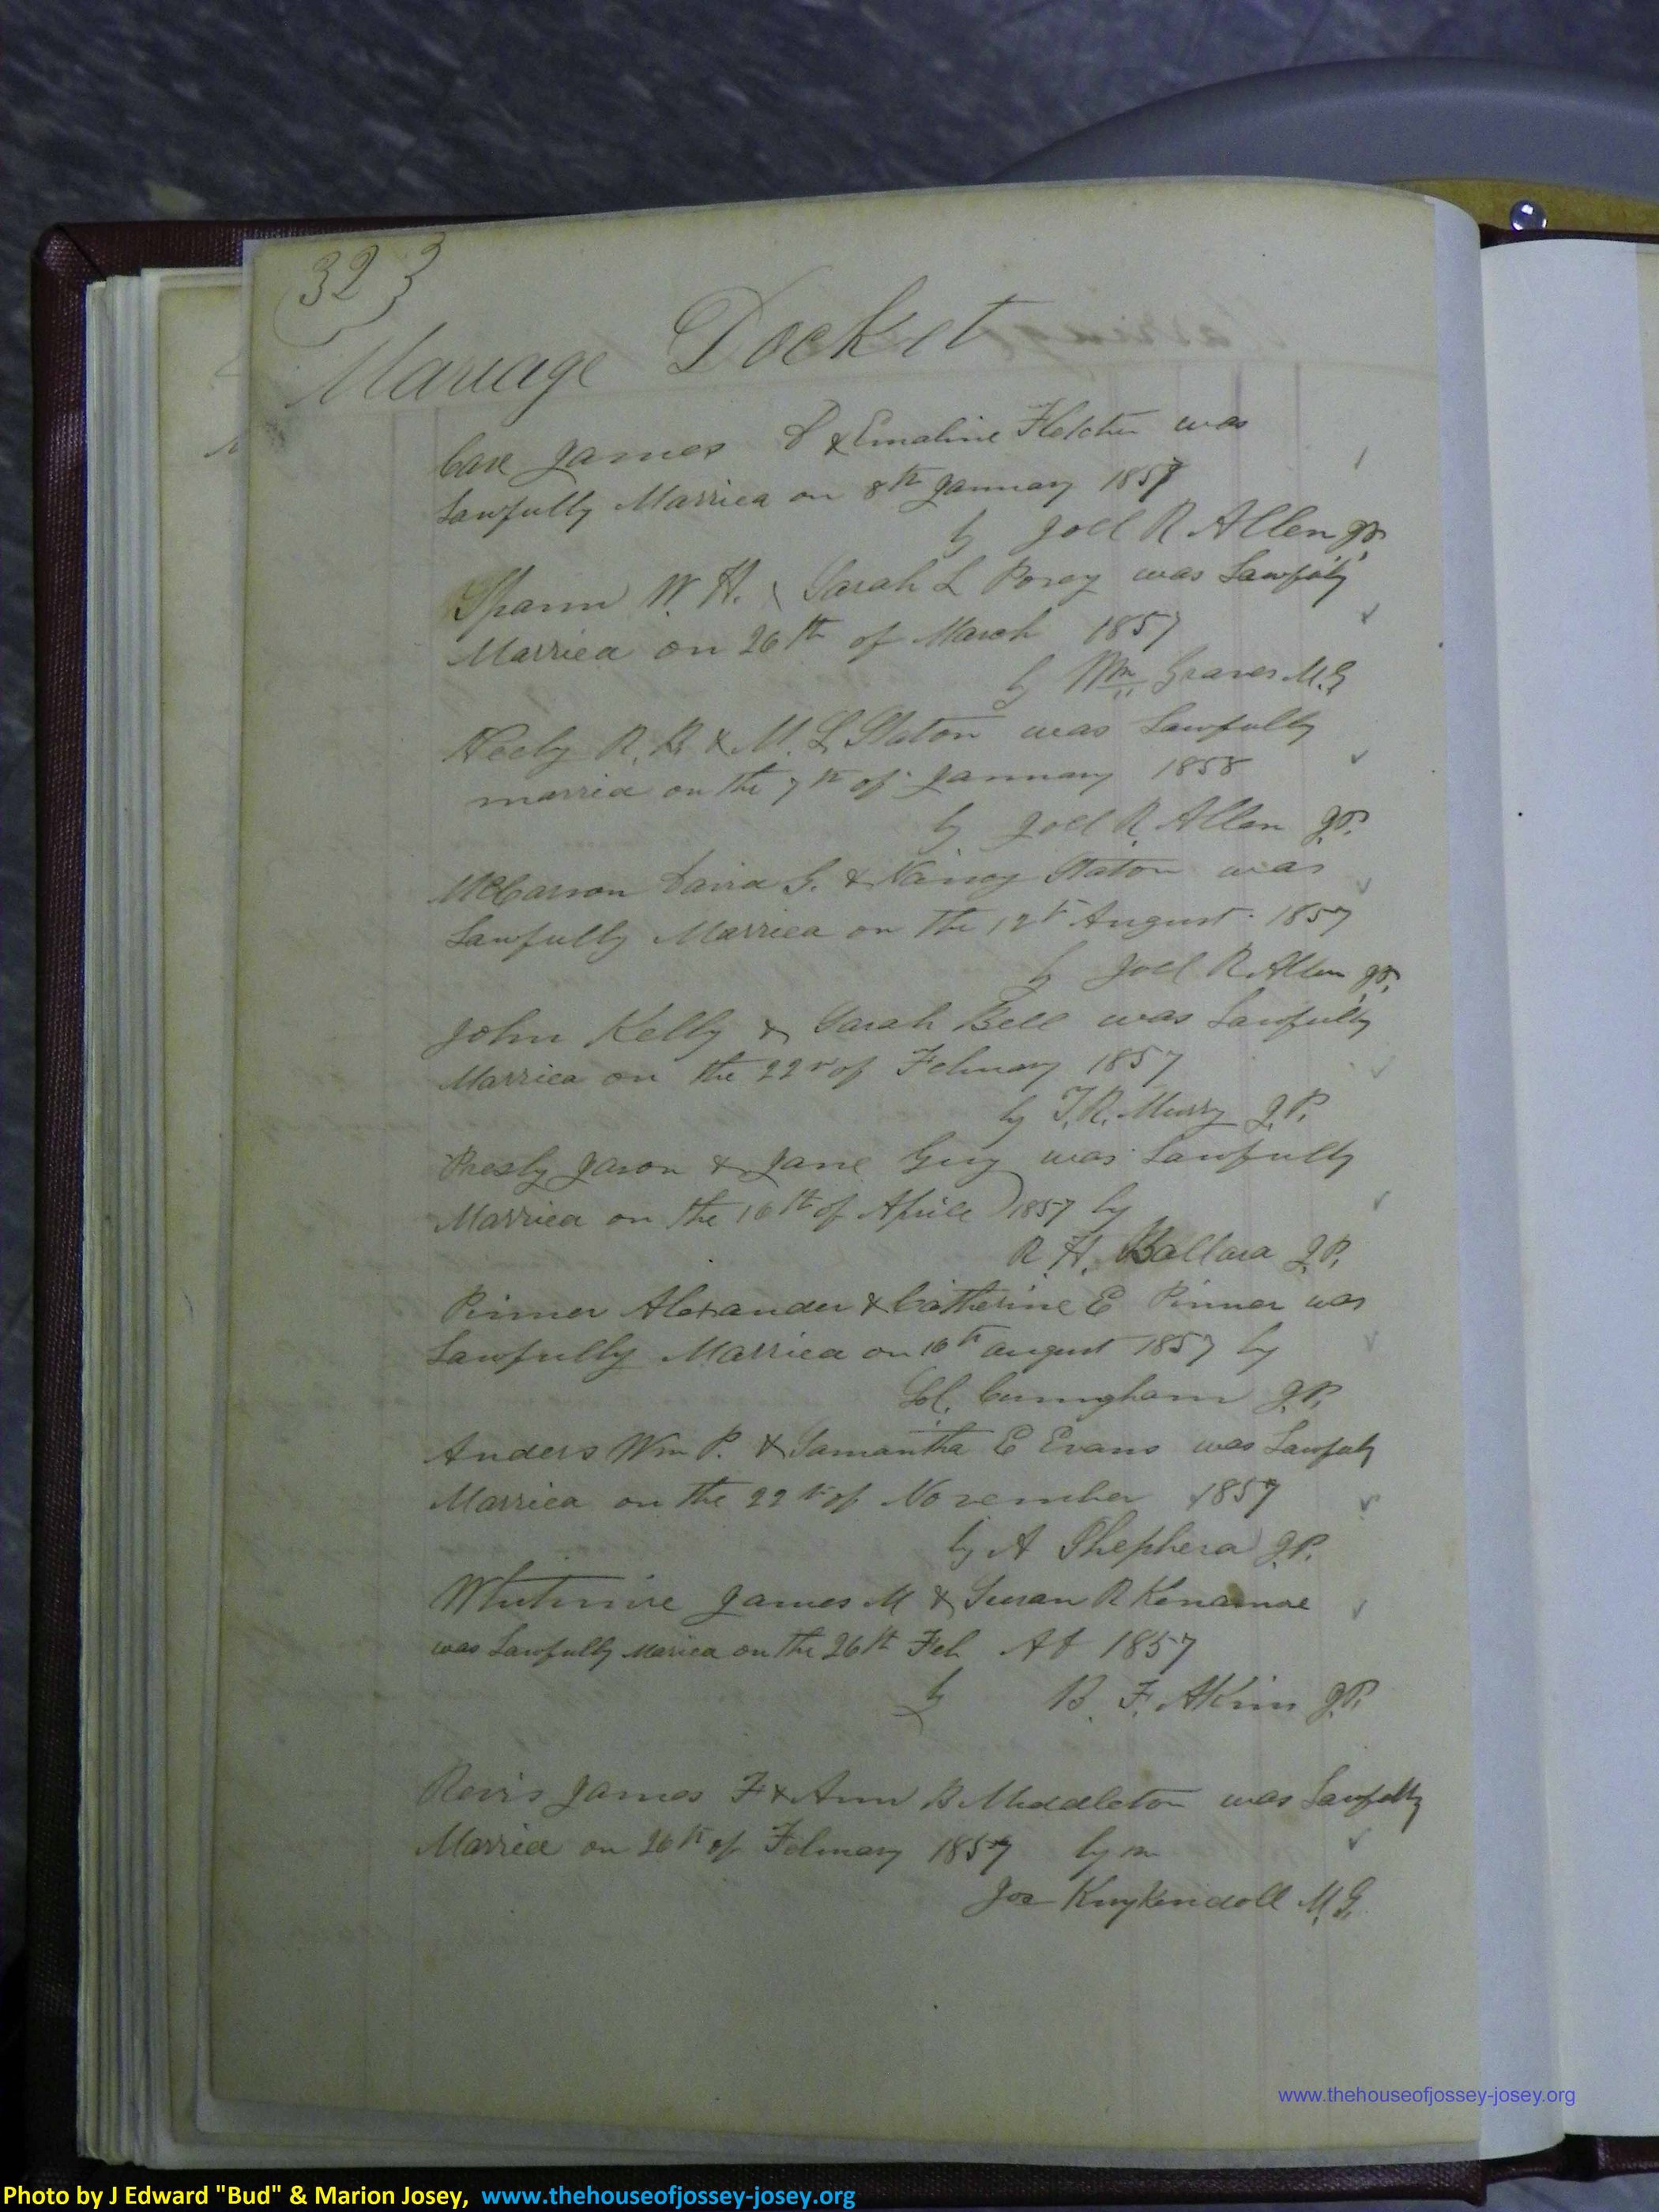 323
Mariage Docket
Case James P & Emaline Fletcher was
Lawfully Married on 8th January 1857
by Joel R Allen JP.
Spann W. H. & Sarah L Posey was Lawfuly
Married on 26th of March 1857
by Wm Graves M.G
Neely R. R. & M. L Staton was Lawfully
married on the 7th of January 1858
by Joel R. Allen J.P.
McCarson David G. & Nancy Staton was
Lawfully Married on the 12th August 1857
by Joel R Allen J.P.
John Kelly & Sarah Bell was Lawfully
Married on the 22nd of February 1857
by T. R. Murry J.P.
Presly Jason & Jane Guy was Lawfully
Married on the 16th of Aprile 1857 by
R. H. Ballard J.P.
Pinner Alexander & Catherine E Pinner was
Lawfully Married on 16th august 1857 by
Cuningham J.P.
Anders Wm P. & Samantha E Evans was Lawfuly
Married on the 22nd of November 1857
by A Shepherd J.P.
Whitmire James M & Susan R Kenamore
was Lawfully Maried on the 26th Feb AD 1857
by B. F. Akin J.P.
Revis James F & Ann B Middleton was Lawfully
Married on 26th of February 1857 by m
Jos Kuykendoll M.G.
www.thehouseofjossey-josey.org
Photo by J Edward "Bud" & Marion Josey, www.thehouseofjossey-josey.org